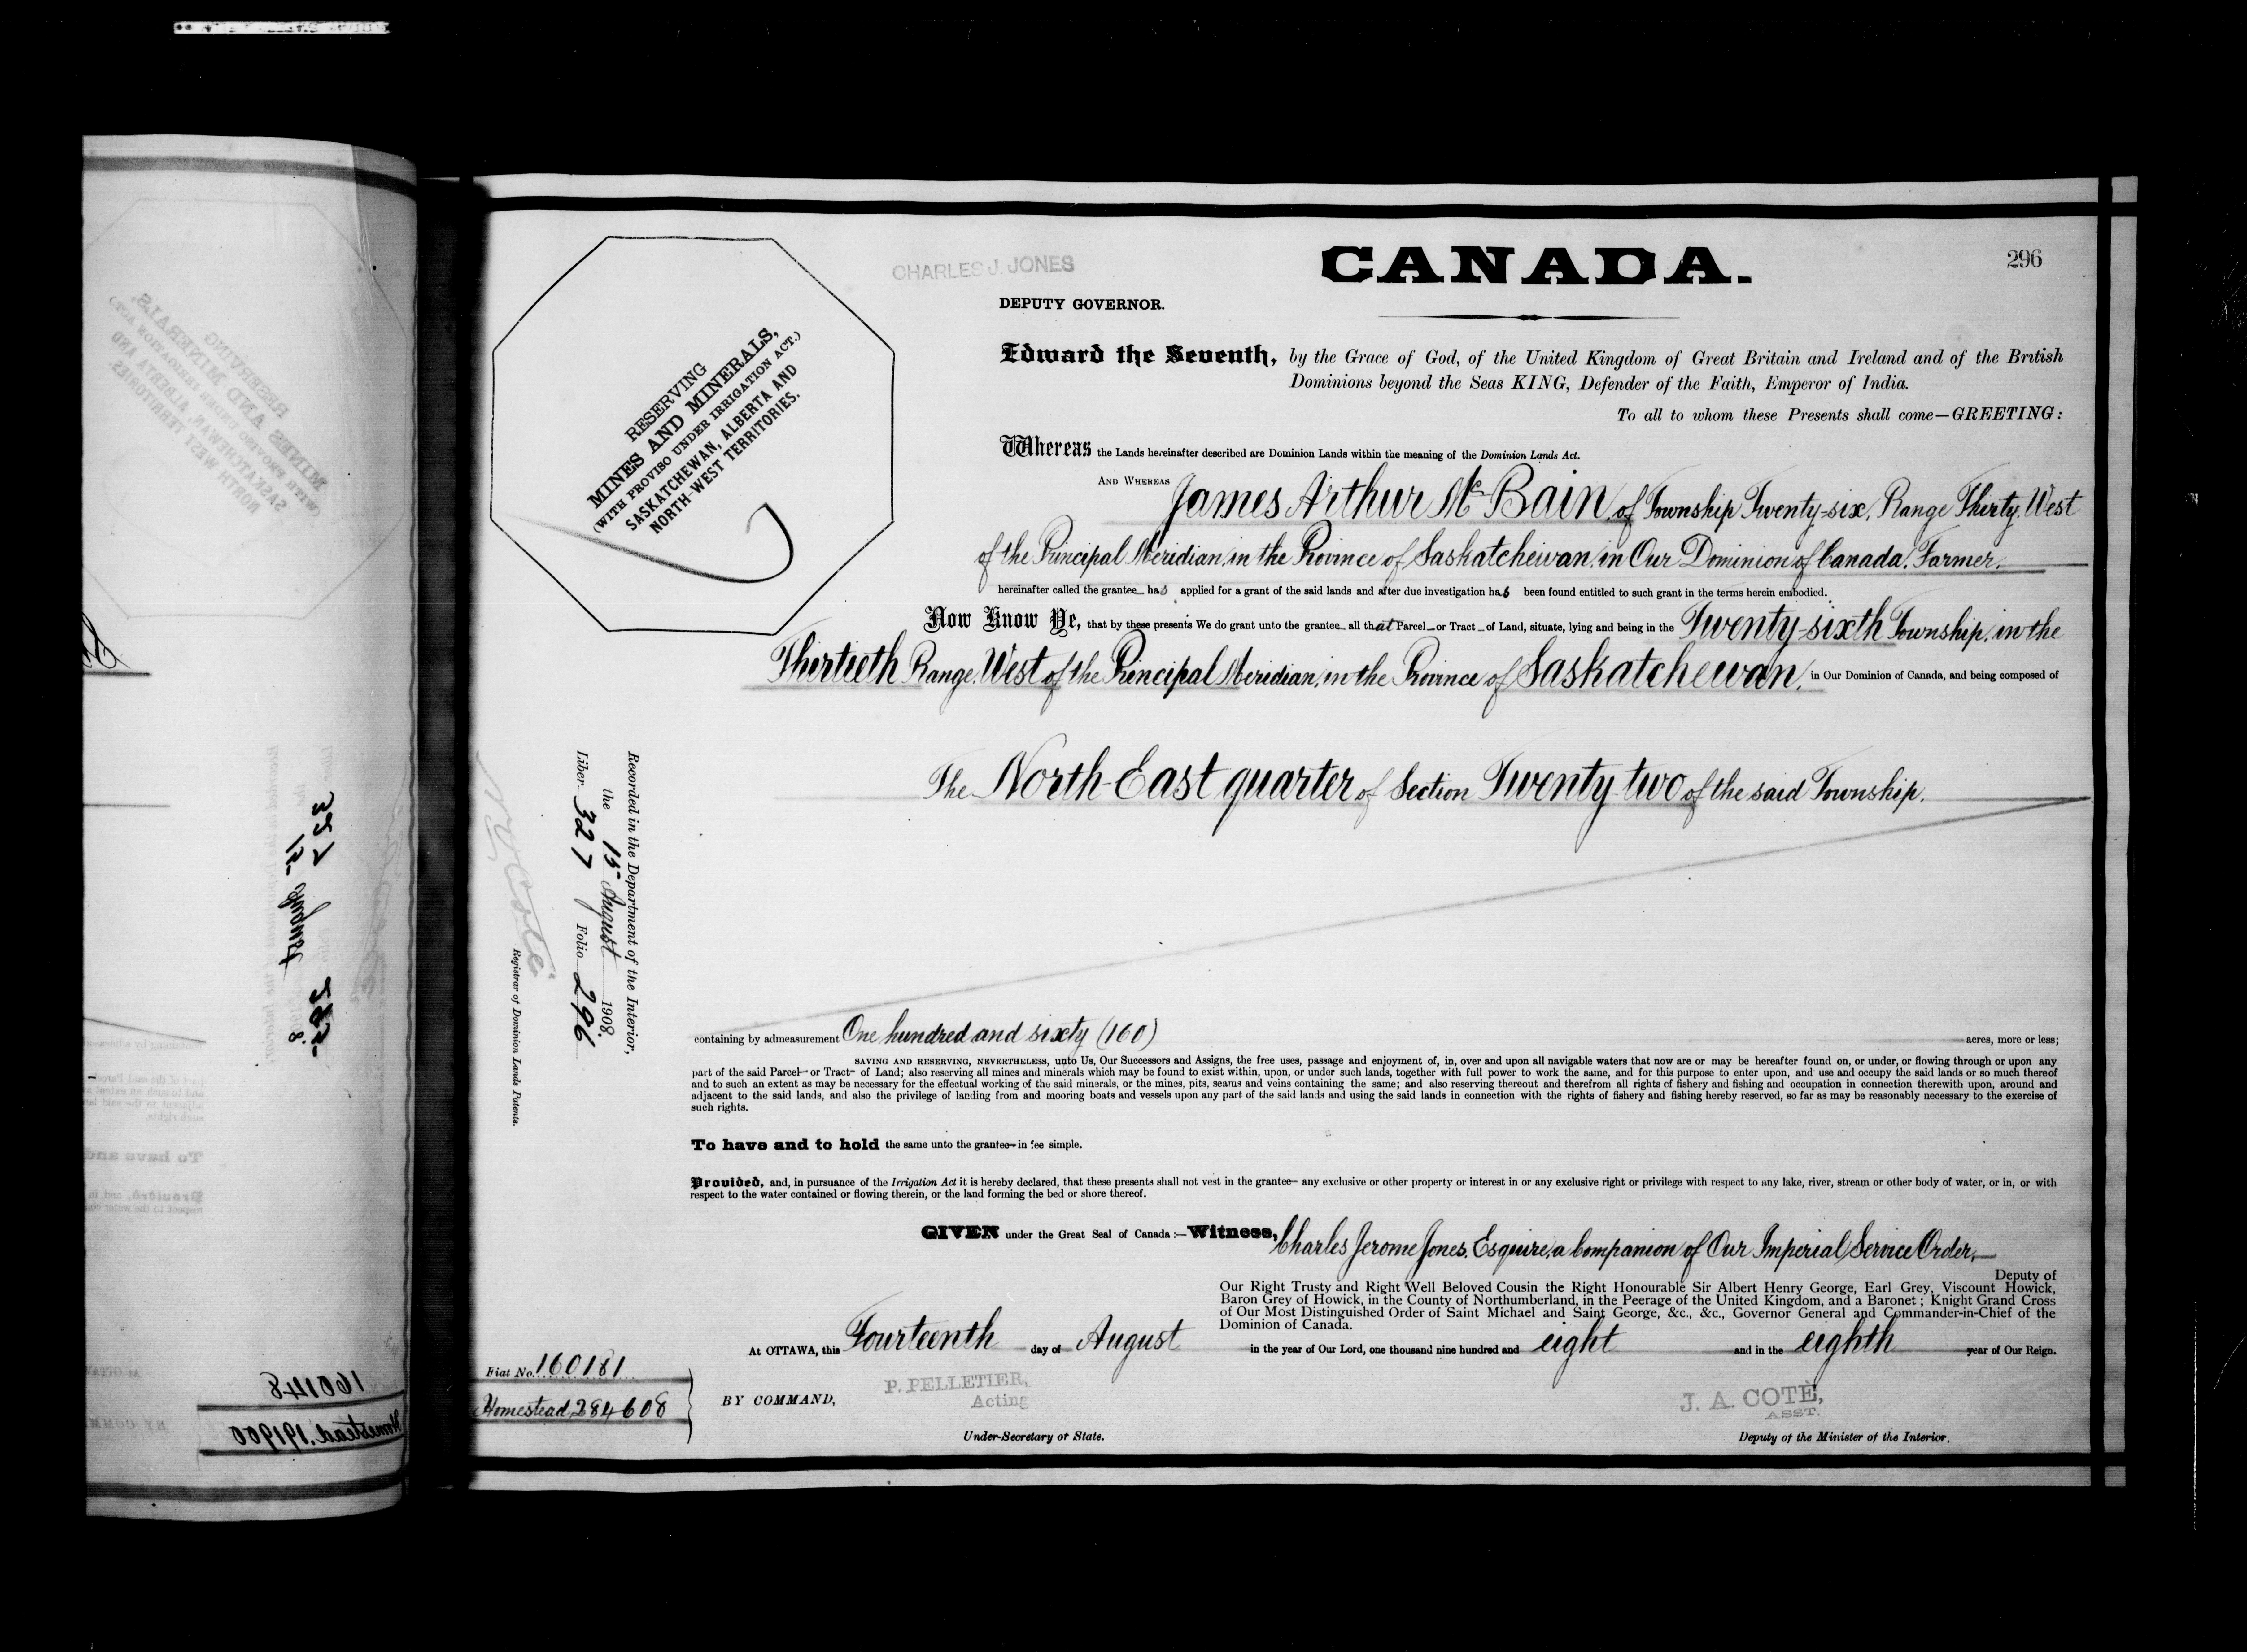 CHARLES J. JONES
CANADA.
296
DEPUTY GOVERNOR.
RESERVING
MINES AND MINERALS,
(WITH PROVISO UNDER IRRIGATION ACT.)
SASKATCHEWAN, ALBERTA AND
NORTH-WEST TERRITORIES.
Edward the Seventh, by the Grace of God, of the United Kingdom of Great Britain and Ireland and of the British
Dominions beyond the Seas KING, Defender of the Faith, Emperor of India.
To all to whom these Presents shall come—GREETING:
Whereas the Lands hereinafter described are Dominion Lands within the meaning of the Dominion Lands Act.
AND WHEREAS James Arthur McBain, of Township Twenty-six, Range Thirty, West
of the Principal Meridian, in the Province of Saskatchewan, in Our Dominion of Canada, Farmer.
hereinafter called the grantee has applied for a grant of the said lands and after due investigation has been found entitled to such grant in the terms herein embodied.
Now Know Ye, that by these presents We do grant unto the grantee all that Parcel or Tract of Land, situate, lying and being in the Twenty-sixth Township, in the
Thirtieth Range, West of the Principal Meridian, in the Province of Saskatchewan, in Our Dominion of Canada, and being composed of
The North-East quarter of Section Twenty-two of the said Township.
Recorded in the Department of the Interior,
the 15 August 1908.
Liber 327 Folio 296
N. O. Coté
Registrar of Dominion Lands Patents.
containing by admeasurement One hundred and sixty (160) acres, more or less;
SAVING AND RESERVING, NEVERTHELESS, unto Us, Our Successors and Assigns, the free uses, passage and enjoyment of, in, over and upon all navigable waters that now are or may be hereafter found on, or under, or flowing through or upon any
part of the said Parcel or Tract of Land; also reserving all mines and minerals which may be found to exist within, upon, or under such lands, together with full power to work the same, and for this purpose to enter upon, and use and occupy the said lands or so much thereof
and to such an extent as may be necessary for the effectual working of the said minerals, or the mines, pits, seams and veins containing the same; and also reserving thereout and therefrom all rights of fishery and fishing and occupation in connection therewith upon, around and
adjacent to the said lands, and also the privilege of landing from and mooring boats and vessels upon any part of the said lands and using the said lands in connection with the rights of fishery and fishing hereby reserved, so far as may be reasonably necessary to the exercise of
such rights.
To have and to hold the same unto the grantee in fee simple.
Provided, and, in pursuance of the Irrigation Act it is hereby declared, that these presents shall not vest in the grantee any exclusive or other property or interest in or any exclusive right or privilege with respect to any lake, river, stream or other body of water, or in, or with
respect to the water contained or flowing therein, or the land forming the bed or shore thereof.
GIVEN under the Great Seal of Canada:—Witness, Charles Jerome Jones, Esquire, a Companion of Our Imperial Service Order,
Deputy of
Our Right Trusty and Right Well Beloved Cousin the Right Honourable Sir Albert Henry George, Earl Grey, Viscount Howick,
Baron Grey of Howick, in the County of Northumberland, in the Peerage of the United Kingdom, and a Baronet; Knight Grand Cross
of Our Most Distinguished Order of Saint Michael and Saint George, &c., &c., Governor General and Commander-in-Chief of the
Dominion of Canada.
At OTTAWA, this Fourteenth day of August in the year of Our Lord, one thousand nine hundred and eight and in the eighth year of Our Reign.
Fiat No. 160181
Homestead, 284608
BY COMMAND,
P. PELLETIER,
Acting
Under-Secretary of State.
J. A. COTÈ,
ASST.
Deputy of the Minister of the Interior.
160148
Homestead, 191900